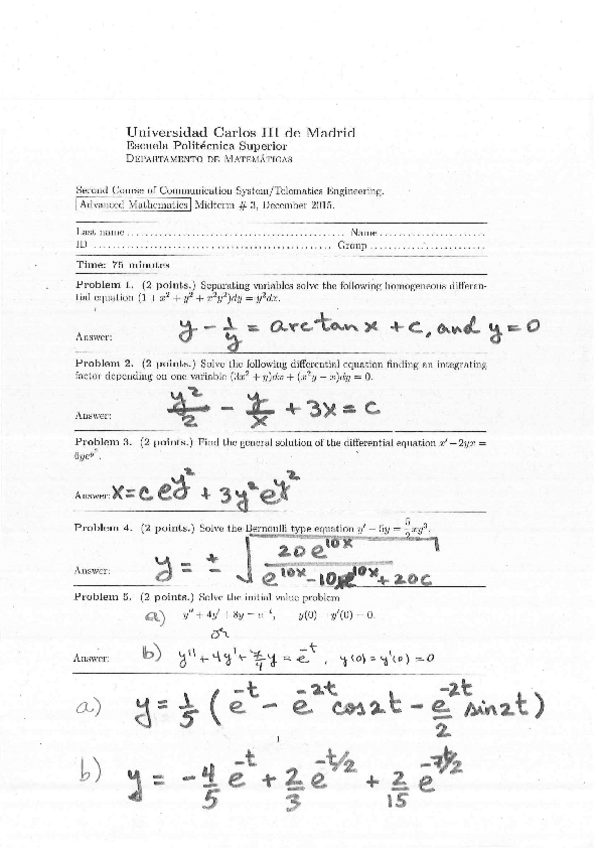 Universidad Carlos III de Madrid
Escuela Politécnica Superior
DEPARTAMENTO DE MATEMÁTICAS
Second Course of Communication System/Telematics Engineering.
Advanced Mathematics Midterm # 3, December 2015.
Last name ........................................ Name ......................
ID ............................................. Group ......................
Time: 75 minutes
Problem 1. (2 points.) Separating variables solve the following homogeneous differen-
tial equation (1 + x² + y² + x²y²)dy = y²dx.
Answer: y - 1/y = arctan x + c, and y = 0
Problem 2. (2 points.) Solve the following differential equation finding an integrating
factor depending on one variable (3x² + y)dx + (x²y − x)dy = 0.
Answer: y²/2 - y/x + 3x = c
Problem 3. (2 points.) Find the general solution of the differential equation x′ − 2yx =
6ye^y².
Answer: x = c e^y² + 3y² e^y²
Problem 4. (2 points.) Solve the Bernoulli type equation y′ − 5y = 5/2 xy³.
Answer: y = ± √(20e^10x / (e^10x - 10x e^10x + 20c))
Problem 5. (2 points.) Solve the initial value problem
a) y″ + 4y′ + 8y = e^-t, y(0) = y′(0) = 0.
or
Answer: b) y″ + 4y′ + 7/4 y = e^-t, y(0) = y′(0) = 0
a) y = 1/5 (e^-t - e^-2t cos2t - e^-2t/2 sin2t)
1
b) y = -4/5 e^-t + 2/3 e^-t/2 + 2/15 e^-7t/2